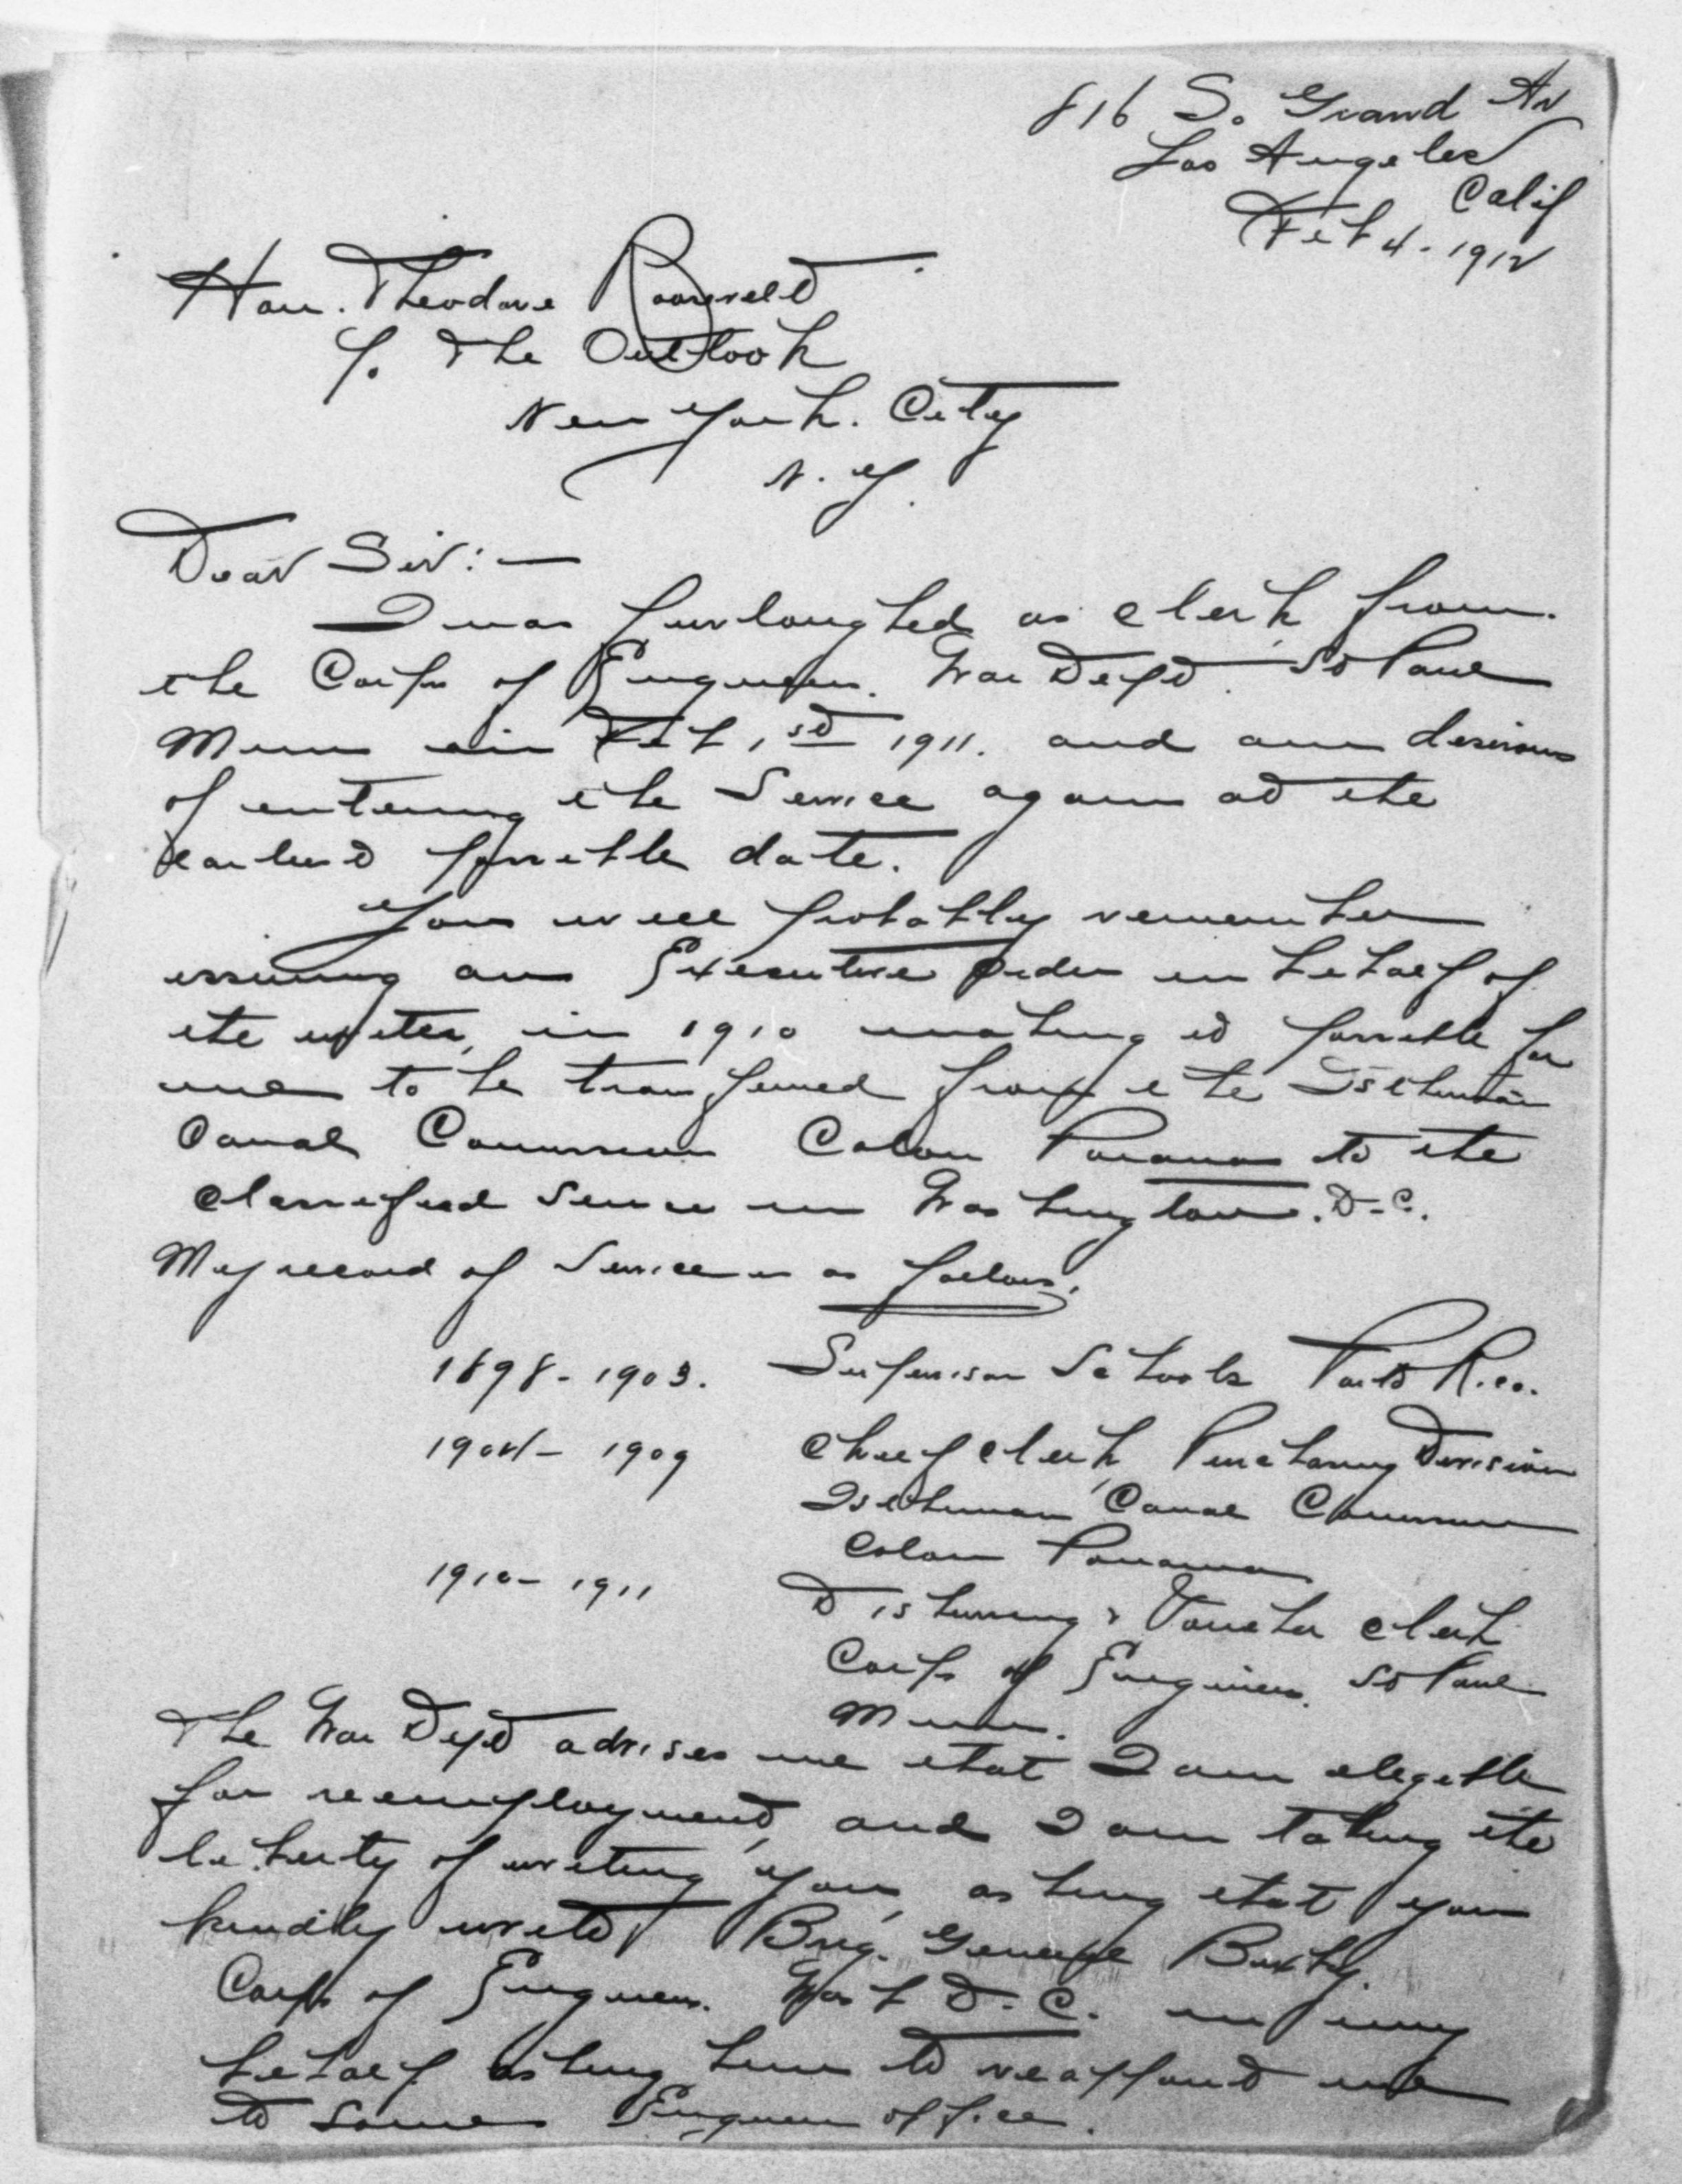 816 So. Grand Av
Los Angeles
Calif
Feb 4 - 1912
Hon. Theodore Roosevelt
% The Outlook
New York. City
N. Y.
Dear Sir: —
I was furloughed as clerk from
the Corps of Engineers. War Dept. St Paul
Minn in Feb 1st 1911. and am desirous
of entering the Service again at the
earliest possible date.
You will probably remember
issuing an Executive order in behalf of
the writer, in 1910 making it possible for
me to be transferred from the Isthmian
Canal Commission Colon Panama to the
classified service in Washington. D-C.
My record of Service is as follows.
1898 - 1903. Supervisor Schools Porto Rico.
1904 - 1909 Chief clerk Purchasing Division
Isthmian Canal Commission
Colon Panama
1910 - 1911 Disbursing & Voucher clerk
Corps of Engineers. St Paul
Minn.
The War Dept advises me that I am elegible
for reemployment, and I am taking the
liberty of writing you, asking that you
kindly write Brig. General Bixby.
Corps of Engineers. Wash D. C. in my
behalf asking him to reappoint me
to some Engineer office.